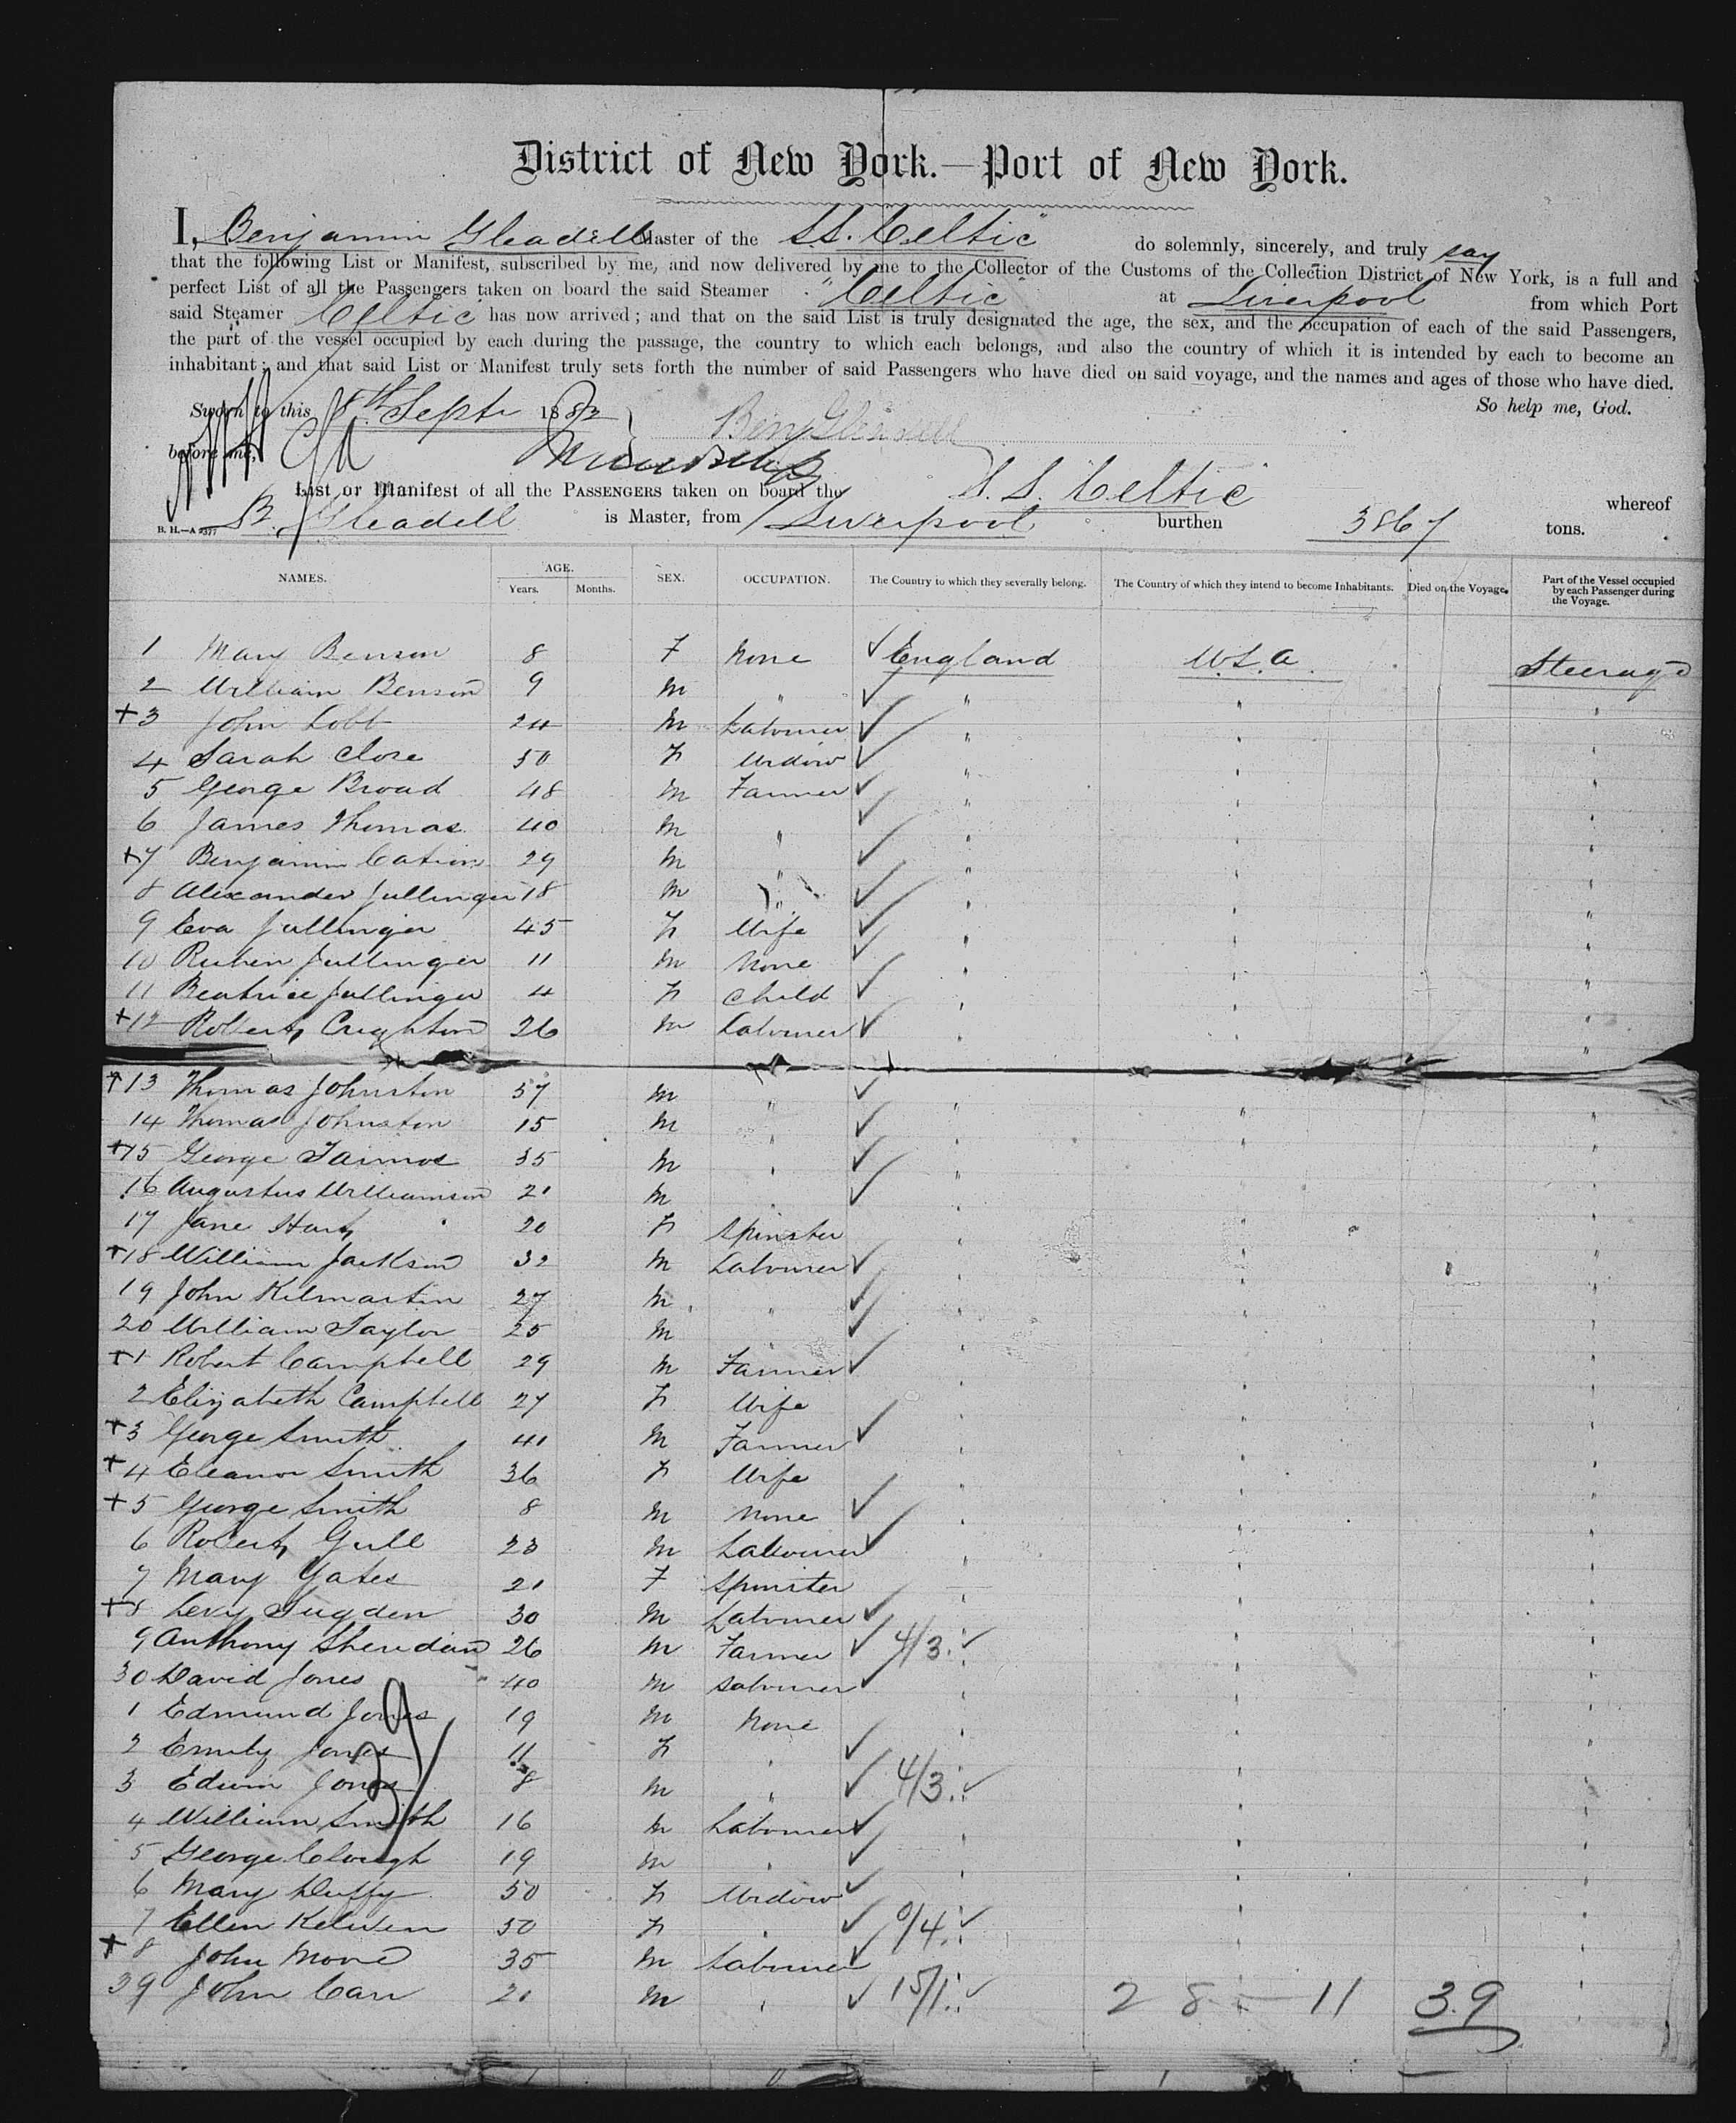 District of New York.—Port of New York.
I, Benjamin Gleadell Master of the S.S. "Celtic" do solemnly, sincerely, and truly say
that the following List or Manifest, subscribed by me, and now delivered by me to the Collector of the Customs of the Collection District of New York, is a full and
perfect List of all the Passengers taken on board the said Steamer "Celtic" at Liverpool from which Port
said Steamer "Celtic" has now arrived; and that on the said List is truly designated the age, the sex, and the occupation of each of the said Passengers,
the part of the vessel occupied by each during the passage, the country to which each belongs, and also the country of which it is intended by each to become an
inhabitant; and that said List or Manifest truly sets forth the number of said Passengers who have died on said voyage, and the names and ages of those who have died.
So help me, God.
Sworn to this 8th Sept 1882
Benj Gleadell
before me,
List or Manifest of all the PASSENGERS taken on board the S.S. Celtic whereof
B. Gleadell is Master, from Liverpool burthen 3867 tons.
B. H.—A 2377
NAMES. AGE. Years. Months. SEX. OCCUPATION. The Country to which they severally belong. The Country of which they intend to become Inhabitants. Died on the Voyage. Part of the Vessel occupied by each Passenger during the Voyage.
1 Mary Benson 8 F None ✓ England U.S.A. Steerage
2 William Benson 9 M " ✓ " " "
+3 John Lobb 24 M Labourer ✓ " " "
4 Sarah Close 50 F Widow ✓ " " "
5 George Broad 48 M Farmer ✓ " " "
6 James Thomas 40 M " ✓ " " "
+7 Benjamin 29 M " ✓ " " "
8 Alexander Jullinger 18 M " ✓ " " "
9 Eva Jullinger 45 F Wife ✓ " " "
10 Ruben Jullinger 11 M None ✓ " " "
11 Beatrice Jullinger 4 F Child ✓ " " "
+12 Robert Crighton 26 M Labourer ✓ " " "
+13 Thomas Johnston 57 M " ✓ " " "
14 Thomas Johnston 15 M " ✓ " " "
+15 George 35 M " ✓ " " "
16 Augustus Williamson 21 M " ✓ " " "
17 Jane Hart 20 F Spinster " " "
+18 William Jackson 32 M Labourer ✓ " " "
19 John Kilmartin 27 M " ✓ " " "
20 William Taylor 25 M " ✓ " " "
+1 Robert Campbell 29 M Farmer ✓ " " "
2 Elizabeth Campbell 27 F Wife " " "
+3 George Smith 41 M Farmer ✓ " " "
+4 Eleanor Smith 36 F Wife " " "
+5 George Smith 8 M None ✓ " " "
6 Robert Gull 23 M Labourer ✓ " " "
7 Mary Yates 21 F Spinster " " "
+8 Levy Sugden 30 M Labourer ✓ " " "
9 Anthony Sheridan 26 M Farmer ✓ 4/3 ✓ " " "
30 David Jones 40 M Labourer ✓ " " "
1 Edmund Jones 19 M None " " "
2 Emily Jones 11 F " ✓ " " "
3 Edwin Jones 8 M " ✓ 4/3 ✓ " " "
4 William Smith 16 M Labourer ✓ " " "
5 George Clough 19 M " ✓ " " "
6 Mary Duffy 50 F Widow ✓ " " "
7 Ellen 50 F " ✓ 0/4 ✓ " " "
+8 John Moore 35 M Labourer ✓ " " "
39 John Carr 21 M " ✓ 15/1 ✓ 28 — 11 39
39/